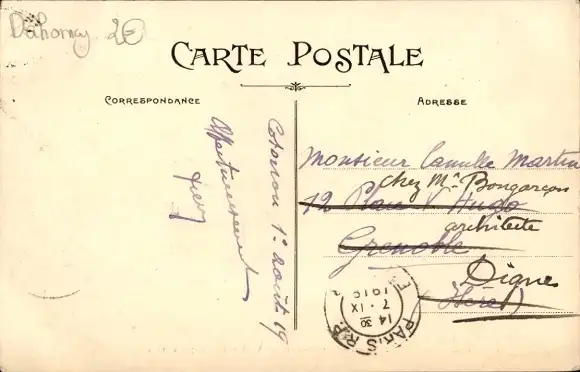 Dahomey 2€
CARTE POSTALE
CORRESPONDANCE
ADRESSE
Cotonou 1er août 19
Affectueusement
Monsieur Camille Martin
chez Mr Bongarçon
12 Place V. Hugo
architecte
Grenoble
Digne
(Isère)
PARIS R.P.
14 30
7 - IX
1919